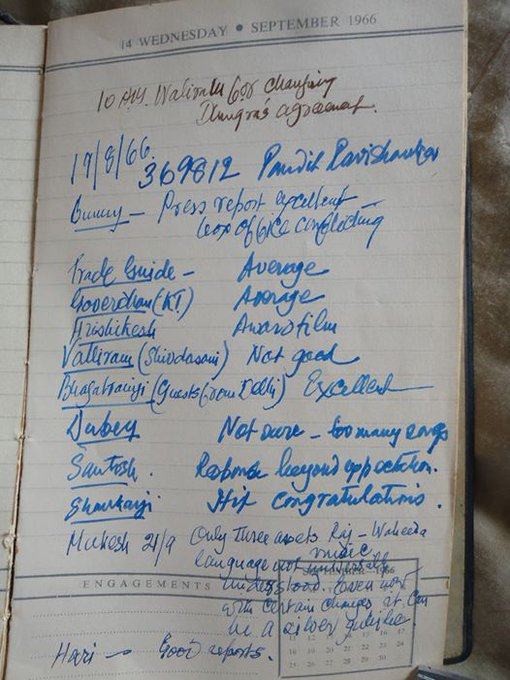 14 WEDNESDAY • SEPTEMBER 1966
10 AM. Watiram for changing
Dhingra's agreement.
17/8/66.
369812 Pandit Ravishankar
Bunny - Press report excellent
box office conflicting
Trade Guide - Average
Goverdhan (KT) Average
Hrishikesh Award film
Valliram (Shivdasani) Not good
Bhagatramji (Guests from Delhi) Excellent
Dubey Not sure - too many songs
Santosh. Response beyond expectation.
Shankarji Hit congratulations.
Mukesh 21/9 Only three assets Raj - Waheeda
music
language not universally
understood. Even now
with certain changes it can
be a silver jubilee
ENGAGEMENTS
1966
Hari - Good reports.